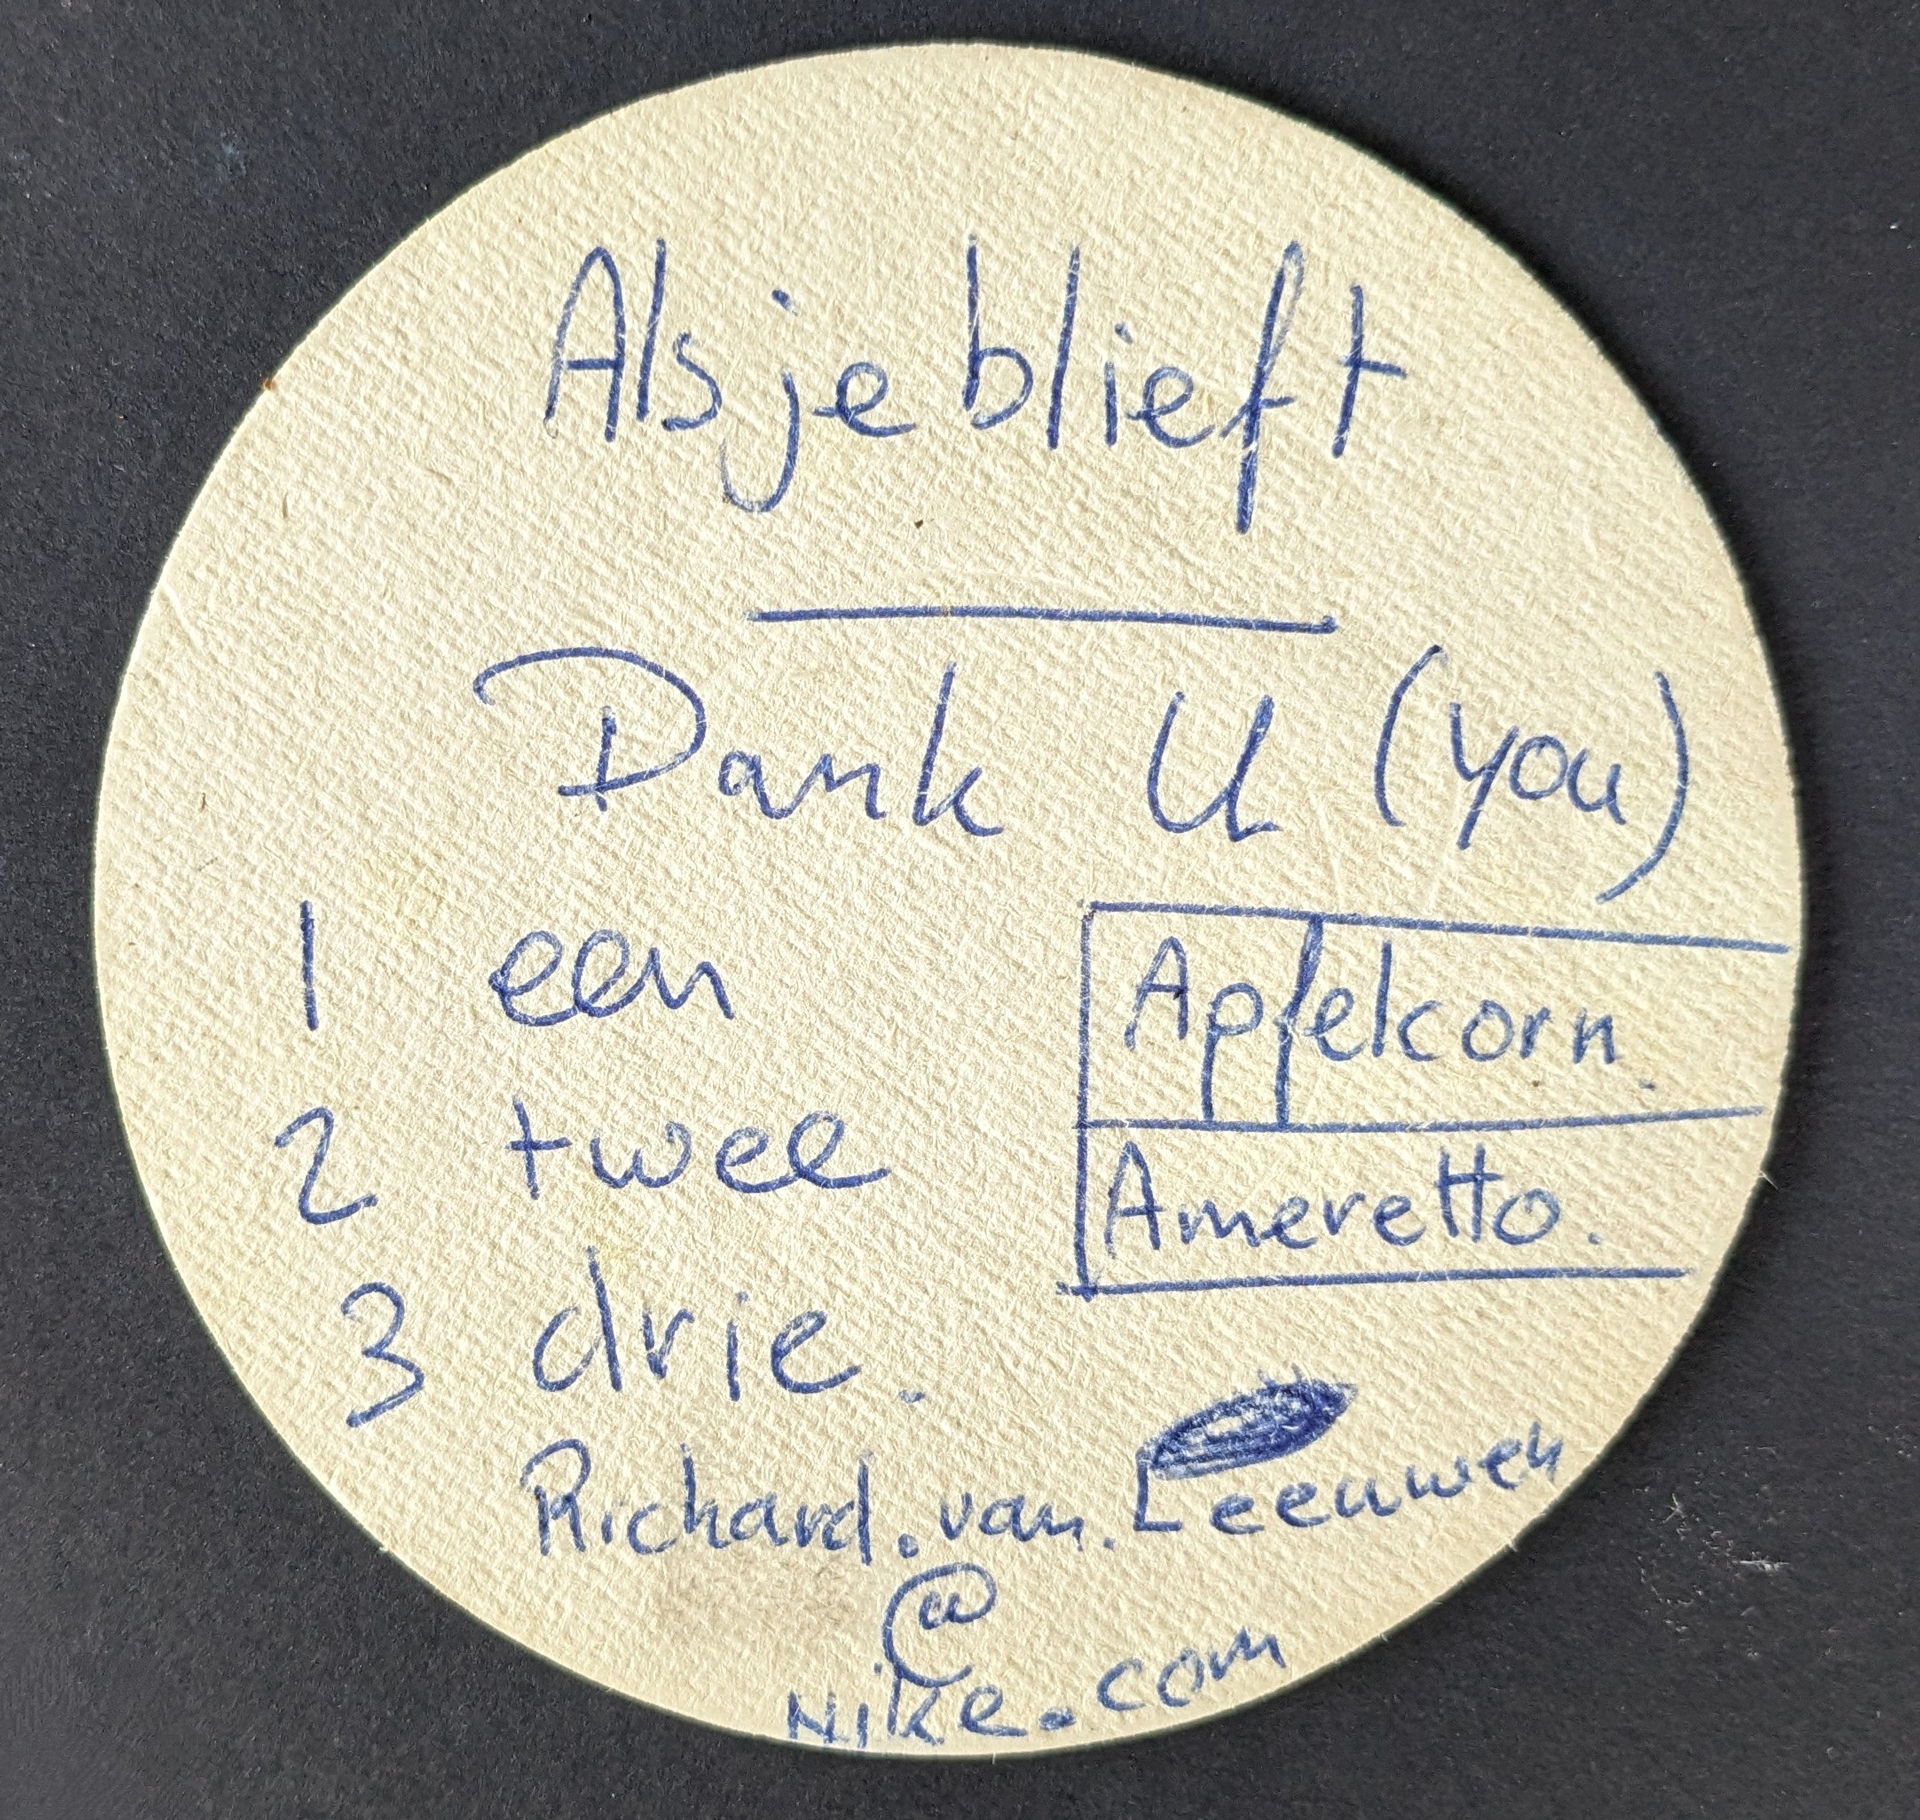 Alsjeblieft
Dank U (you)
1 een
2 twee
3 drie.
Apfelcorn.
Ameretto.
Richard.van.Leeuwen
@
Nike.com